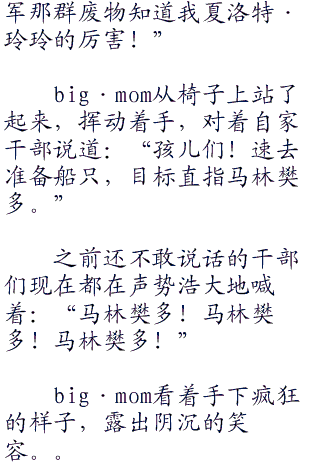 军那群废物知道我夏洛特·
玲玲的厉害！”
big·mom从椅子上站了
起来，挥动着手，对着自家
干部说道：“孩儿们！速去
准备船只，目标直指马林樊
多。”
之前还不敢说话的干部
们现在都在声势浩大地喊
着：“马林樊多！马林樊
多！马林樊多！”
big·mom看着手下疯狂
的样子，露出阴沉的笑
容。。